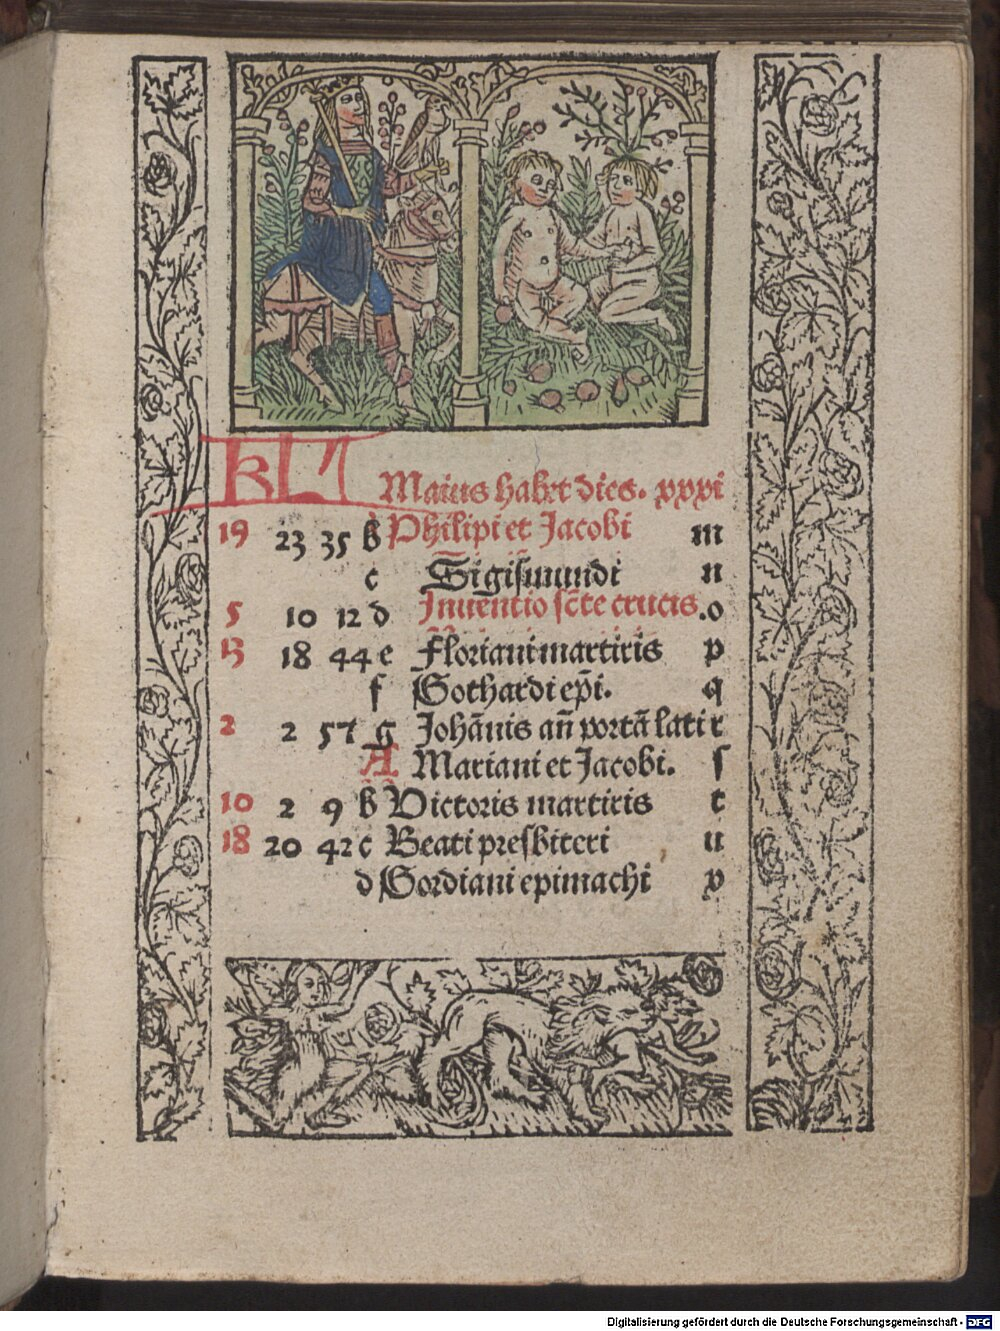 KL Maius habet dies. xxxi
19 23 35 b Philipi et Jacobi m
c Sigismundi n
5 10 12 d Inuentio scte crucis. o
13 18 44 e Floriani martiris p
f Gothardi epi. q
2 2 57 g Johānis an̄ portā lati r
A Mariani et Jacobi. s
10 2 9 b Victoris martiris t
18 20 42 c Beati presbiteri u
d Gordiani epimachi v
Digitalisierung gefördert durch die Deutsche Forschungsgemeinschaft - DFG